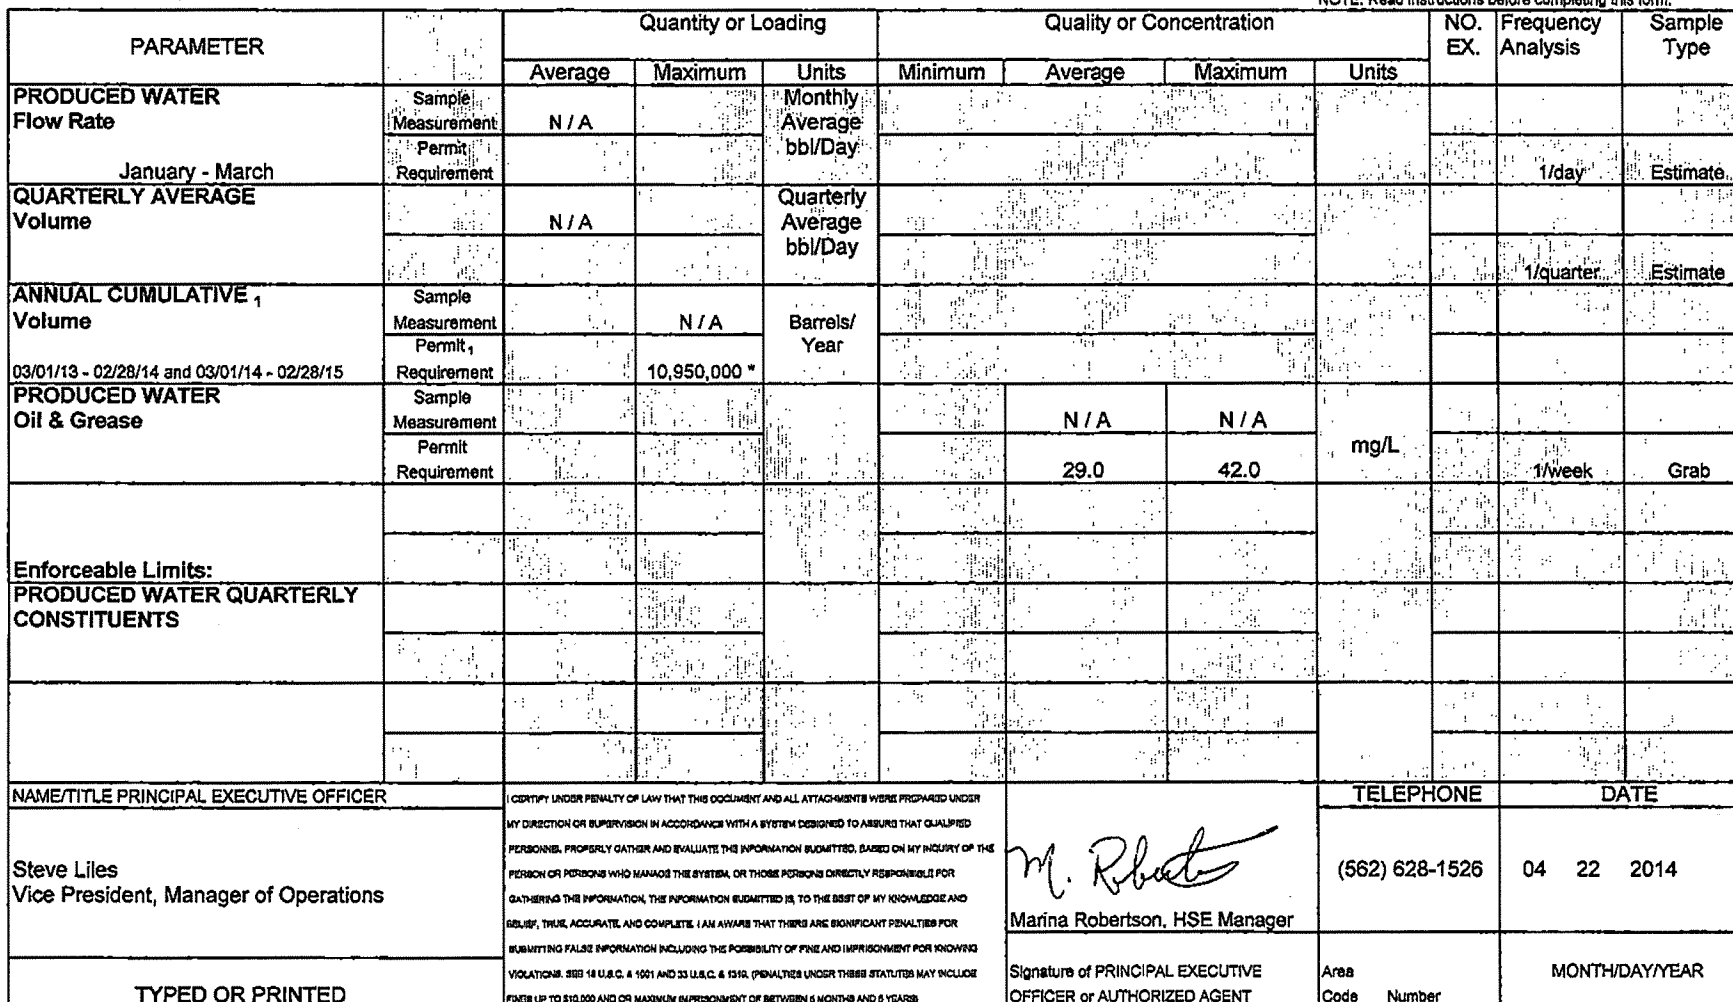 NOTE: Read instructions before completing this form.
PARAMETER
Quantity or Loading
Quality or Concentration
NO. EX.
Frequency Analysis
Sample Type
Average Maximum Units Minimum Average Maximum Units
PRODUCED WATER
Flow Rate
January - March
Sample Measurement
N / A
Monthly Average bbl/Day
Permit Requirement
1/day Estimate
QUARTERLY AVERAGE
Volume
N / A
Quarterly Average bbl/Day
1/quarter Estimate
ANNUAL CUMULATIVE 1
Volume
03/01/13 - 02/28/14 and 03/01/14 - 02/28/15
Sample Measurement
N / A
Barrels/ Year
Permit 1 Requirement
10,950,000 *
PRODUCED WATER
Oil & Grease
Sample Measurement
N / A N / A
mg/L
Permit Requirement
29.0 42.0
1/week Grab
Enforceable Limits:
PRODUCED WATER QUARTERLY
CONSTITUENTS
NAME/TITLE PRINCIPAL EXECUTIVE OFFICER
Steve Liles
Vice President, Manager of Operations
TYPED OR PRINTED
I CERTIFY UNDER PENALTY OF LAW THAT THIS DOCUMENT AND ALL ATTACHMENTS WERE PREPARED UNDER
MY DIRECTION OR SUPERVISION IN ACCORDANCE WITH A SYSTEM DESIGNED TO ASSURE THAT QUALIFIED
PERSONNEL PROPERLY GATHER AND EVALUATE THE INFORMATION SUBMITTED, BASED ON MY INQUIRY OF THE
PERSON OR PERSONS WHO MANAGE THE SYSTEM, OR THOSE PERSONS DIRECTLY RESPONSIBLE FOR
GATHERING THE INFORMATION, THE INFORMATION SUBMITTED IS, TO THE BEST OF MY KNOWLEDGE AND
BELIEF, TRUE, ACCURATE, AND COMPLETE. I AM AWARE THAT THERE ARE SIGNIFICANT PENALTIES FOR
SUBMITTING FALSE INFORMATION INCLUDING THE POSSIBILITY OF FINE AND IMPRISONMENT FOR KNOWING
VIOLATIONS. SEE 18 U.S.C. & 1001 AND 33 U.S.C. & 1319. (PENALTIES UNDER THESE STATUTES MAY INCLUDE
FINES UP TO $10,000 AND OR MAXIMUM IMPRISONMENT OF BETWEEN 6 MONTHS AND 5 YEARS)
M. Robertson
Marina Robertson, HSE Manager
Signature of PRINCIPAL EXECUTIVE
OFFICER or AUTHORIZED AGENT
TELEPHONE
(562) 628-1526
Area Code Number
DATE
04 22 2014
MONTH/DAY/YEAR